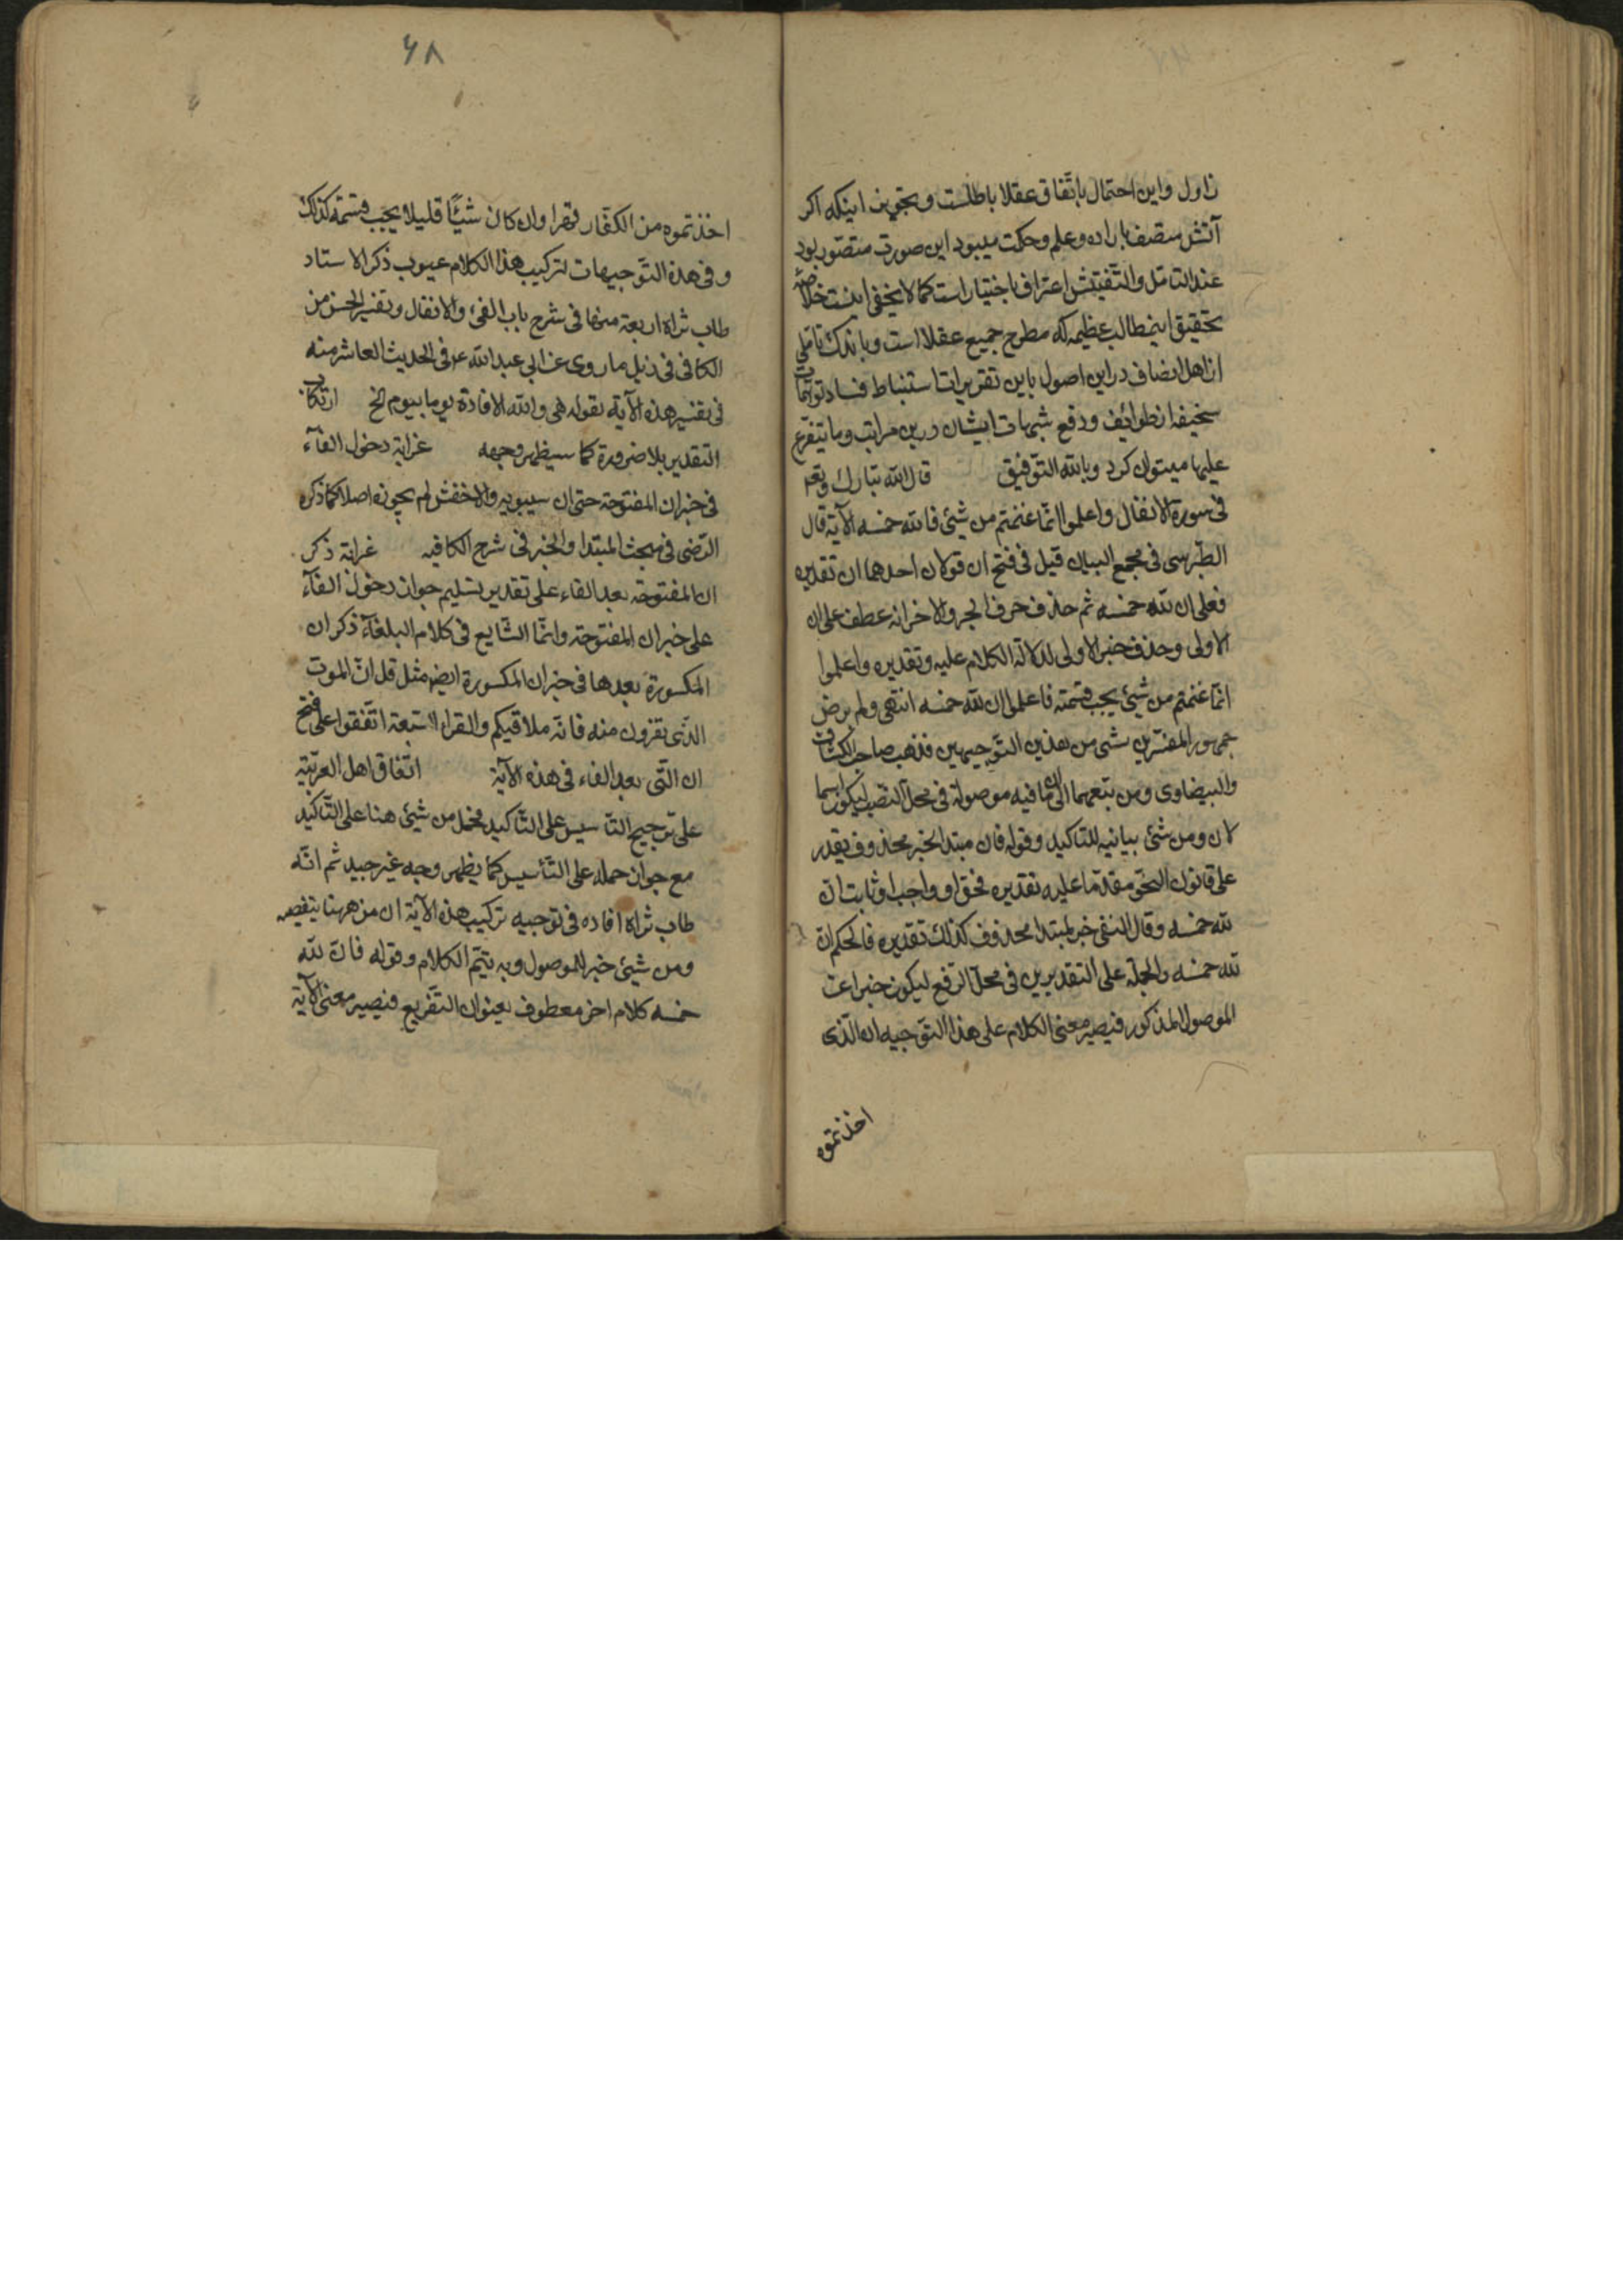 زاول واین احتمال باتفاق عقلا باطلست وتجویز اینکه اکر
آتش متصف باراده وعلم وحکمت میبود این صورت متصور بود
عند التامل والتفتیش اعتراف باختیار است کما لا یخفی اینست خلاصه
تحقیق اینمطالب عظیمه که مطرح جمیع عقلا است وباندک تاملی
از اهل انصاف در این اصول باین تقریرات استنباط فساد توهمات
سخیفه از طوائف ودفع شبهات ایشان درین مراتب وما یتفرع
علیها میتوان کرد وبالله التوفیق قال الله تبارک وتعه
فی سورة الانفال واعلموا انما غنمتم من شیئ فانلله خمسه الآیة قال
الطبرسی فی مجمع البیان قیل فی فتح ان قولان احدهما ان تقدیره
فعلی ان لله خمسه ثم حذف حرف الجر والاخر انه عطف علی ان
الاولی وحذف خبر الاولی لدلالة الکلام علیه وتقدیره واعلموا
انما غنمتم من شیئ یجب قسمته فاعلموا ان لله خمسه انتهی ولم یرض
جمهور المفسرین بشی من هذین التوجیهین فذهب صاحب الکشاف
والبیضاوی ومن تبعهما الی ان ما فیه موصولة فی محل النصب لیکون اسما
لان ومن شیئ بیانیه للتاکید وقوله فان مبتدا خبره محذوف یقدر
علی قانون النحو مقدما علیه تقدیره فحق او واجب او ثابت ان
لله خمسه وقال النسفی خبر لمبتدا محذوف کذلک تقدیره فالحکم ان
لله خمسه والجملة علی التقدیرین فی محل الرفع لیکون خبرا عن
الموصول المذکور فیصیر معنی الکلام علی هذا التوجیه ان الذی
اخذتموه
۶۸
اخذتموه من الکفار قهرا وان کان شیئًا قلیلا یجب قسمته کذلک
وفی هذه التوجیهات لترکیب هذا الکلام عیوب ذکر الاستاد
طاب ثراه اربعة منها فی شرح باب الفئ والانفال وتفسیر الخمس من
الکافی فی ذیل ما روی عن ابی عبد الله ع فی الحدیث العاشر منه
فی تفسیر هذه الآیة بقوله هی والله الافادة یوما بیوم الخ ارتکاب
التقدیر بلا ضرورة کما سیظهر وجهه غرابة دخول الفآء
فی خبر ان المفتوحة حتی ان سیبویه والاخفش لم یجوزه اصلا کما ذکره
الرضی فی مبحث المبتدا والخبر فی شرح الکافیه غرابة ذکر
ان المفتوحة بعد الفاء علی تقدیر تسلیم جواز دخول الفآء
علی خبر ان المفتوحة وانما الشایع فی کلام البلغآء ذکر ان
المکسورة بعدها فی خبر ان المکسورة ایضه مثل قل ان الموت
الذی تفرون منه فانه ملاقیکم والقراء السبعة اتفقوا علی فتح
ان التی بعد الفاء فی هذه الآیة اتفاق اهل العربیة
علی ترجیح التاسیس علی التاکید فحمل من شیئ هنا علی التاکید
مع جواز حمله علی التأسیس کما یظهر وجه غیر جید ثم انه
طاب ثراه افاده فی توجیه ترکیب هذه الآیة ان من ههنا
ومن شیئ خبر للموصول وبه یتم الکلام وقوله فان لله
خمسه کلام اخر معطوف بعنوان التفریع فیصیر معنی الآیة